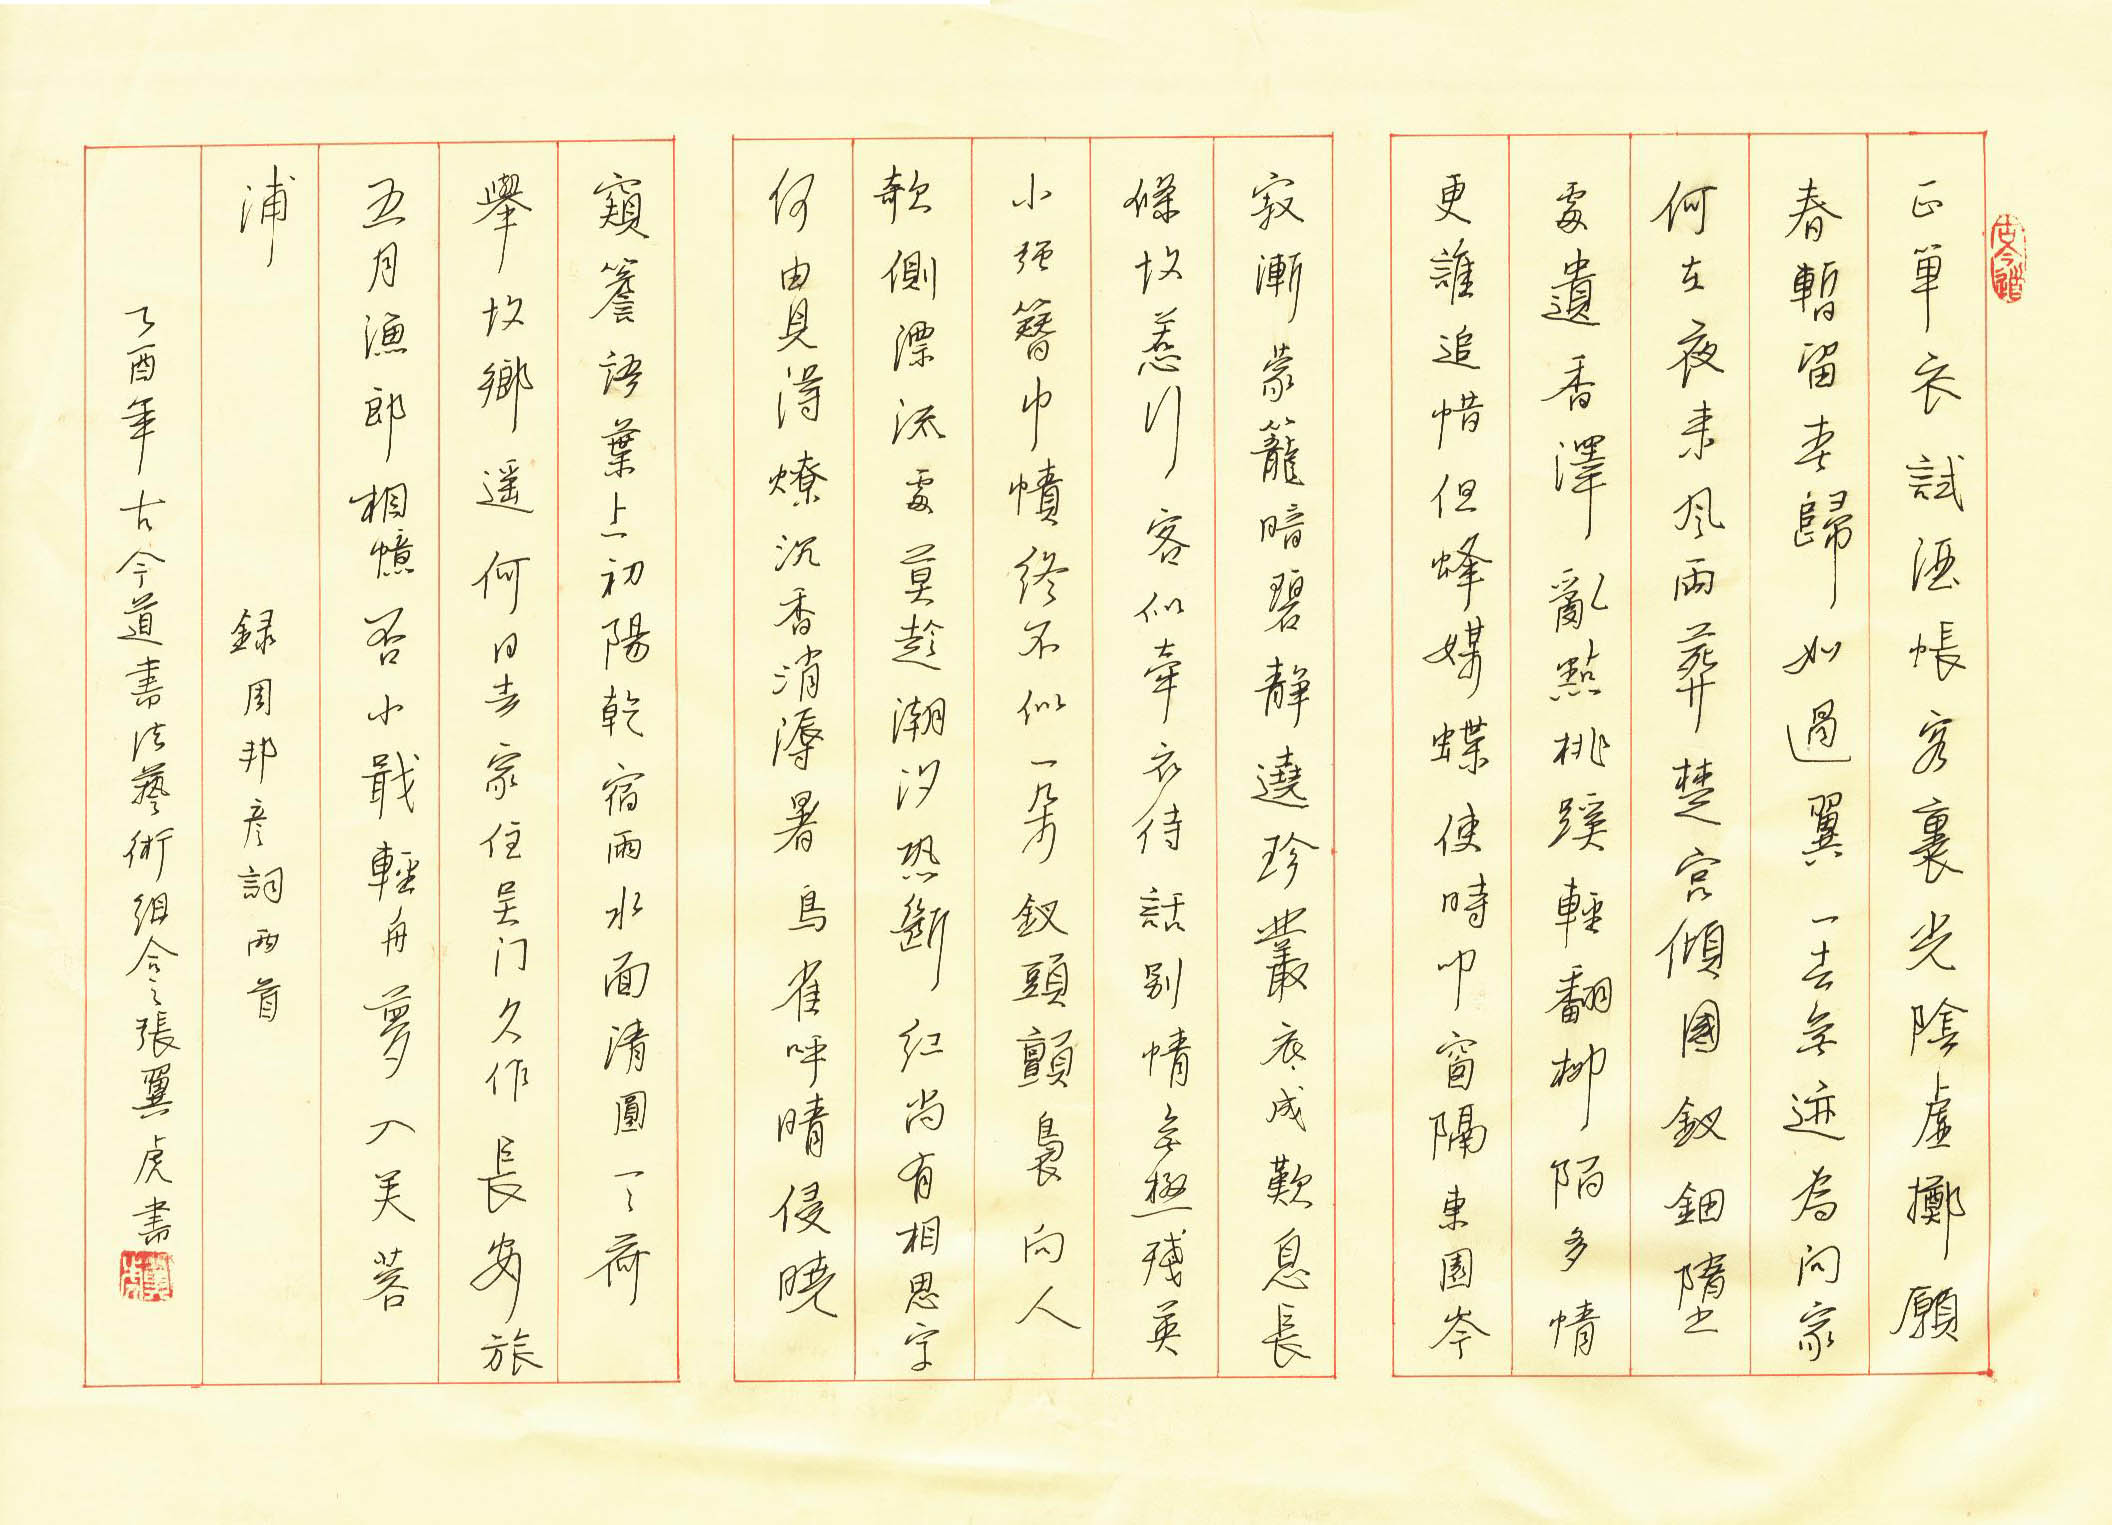 古今道
正單衣試酒悵客裏光陰虛擲願
春暫留春歸如過翼一去無迹為問家
何在夜来風雨葬楚宮傾國釵鈿墮
處遺香澤亂點桃蹊輕翻柳陌多情
更誰追惜但蜂媒蝶使時叩窗隔東園岑
寂漸蒙籠暗碧静遶珍叢底成歎息長
條故惹行客似牽衣待話别情無極殘英
小強簪巾幘終不似一朵釵頭顫裊向人
欹側漂流處莫趁潮汐恐斷紅尚有相思字
何由見得燎沉香消溽暑鳥雀呼晴侵曉
窺簷語葉上初陽乾宿雨水面清圓一一荷
舉故鄉遥何日去家住吴门久作長安旅
五月漁郎相憶否小戢輕舟夢入芙蓉
浦
録周邦彦詞兩首
乙酉年古今道書法藝術組合之張翼虎書